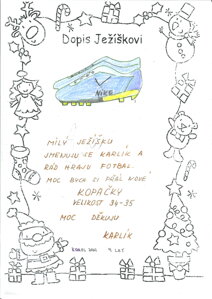 Dopis Ježíškovi
NIKE
MILÝ JEŽÍŠKU
JMENUJU SE KARLÍK A
RÁD HRAJU FOTBAL.
MOC BYCH SI PŘÁL NOVÉ
KOPAČKY
VELIKOST 34-35
MOC DĚKUJU
KARLÍK
LET